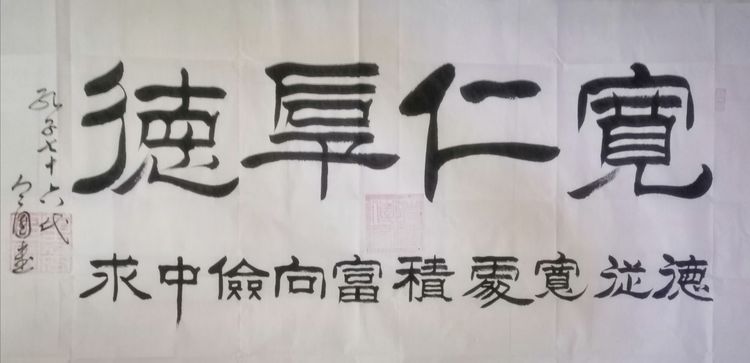 寬仁厚德
德從寬處積富向儉中求
孔子七十六代
書